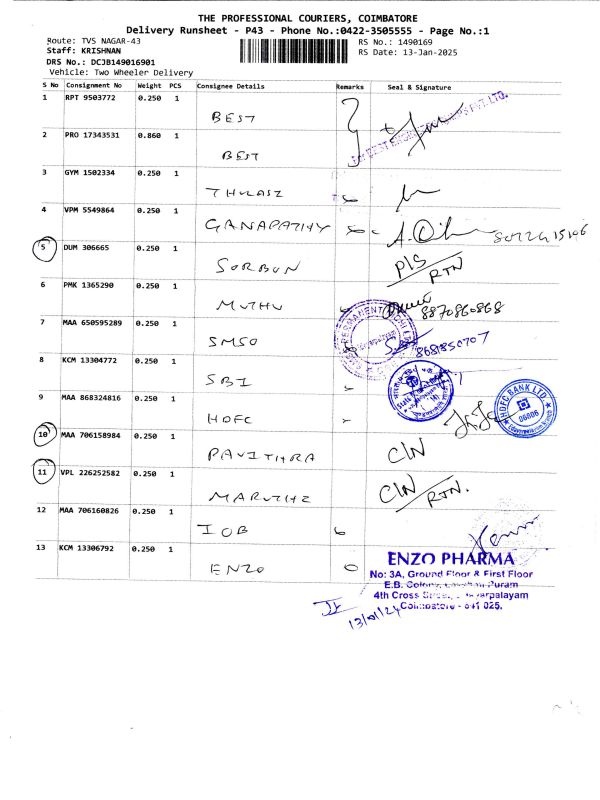 THE PROFESSIONAL COURIERS, COIMBATORE
Delivery Runsheet - P43 - Phone No.:0422-3505555 - Page No.:1
Route: TVS NAGAR-43
RS No.: 1490169
Staff: KRISHNAN
RS Date: 13-Jan-2025
DRS No.: DCJB149016901
Vehicle: Two Wheeler Delivery
S No Consignment No Weight PCS Consignee Details Remarks Seal & Signature
1 RPT 9503772 0.250 1
BEST
2 PRO 17343531 0.860 1
BEST
3 GYM 1502334 0.250 1
THULASI
4 VPM 5549864 0.250 1
GANAPATHY
5 DUM 306665 0.250 1
SORBUN P/S RTN
6 PMK 1365290 0.250 1
MUTHU 8870860868
7 MAA 650595289 0.250 1
SMSO 8681850707
8 KCM 13304772 0.250 1
SBI
9 MAA 868324816 0.250 1
HDFC
HDFC BANK LTD.
06806
10 MAA 706158984 0.250 1
PAVITHRA C/N
11 VPL 226252582 0.250 1
MARUTHI C/N RTN.
12 MAA 706160826 0.250 1
IOB
13 KCM 13306792 0.250 1
ENZO
ENZO PHARMA
No: 3A, Ground Floor & First Floor
E.B. Colony, Puram
4th Cross
Coimbatore - 641 025.